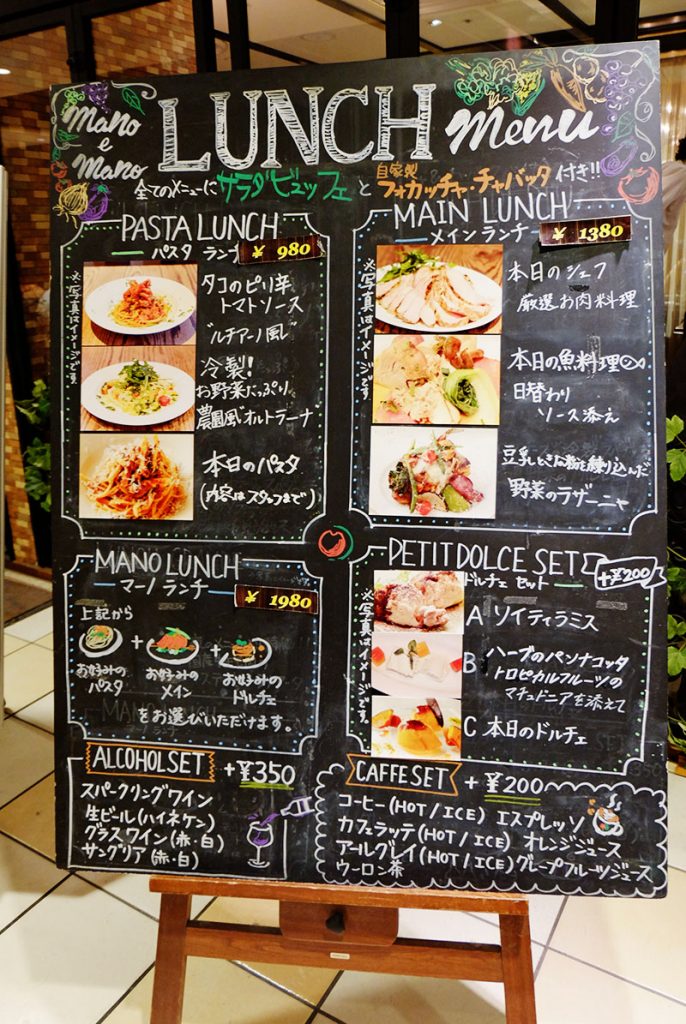 Mano
e
Mano
LUNCH Menu
全てのメニューにサラダビュッフェと自家製フォカッチャ・チャバッタ付き!!
PASTA LUNCH
パスタ ランチ
¥ 980
※写真はイメージです。
タコのピリ辛
トマトソース
ルチアーノ風
冷製!
お野菜たっぷり
農園風オルトラーナ
本日のパスタ
(内容はスタッフまで)
MAIN LUNCH
メインランチ
¥ 1380
※写真はイメージです。
本日のシェフ
厳選お肉料理
本日の魚料理
日替わり
ソース添え
豆乳ときな粉を練り込んだ
野菜のラザーニャ
MANO LUNCH
マーノ ランチ
¥ 1980
上記から
+ +
お好みの
パスタ
お好みの
メイン
お好みの
ドルチェ
をお選びいただけます。
PETIT DOLCE SET
ドルチェ セット
+¥200
※写真はイメージです。
A ソイティラミス
B ハーブのパンナコッタ
トロピカルフルーツの
マチェドニアを添えて
C 本日のドルチェ
ALCOHOL SET +¥350
スパークリングワイン
生ビール(ハイネケン)
グラスワイン(赤・白)
サングリア(赤・白)
CAFFE SET +¥200
コーヒー(HOT/ICE) エスプレッソ
カフェラッテ(HOT/ICE) オレンジジュース
アールグレイ(HOT/ICE) グレープフルーツジュース
ウーロン茶